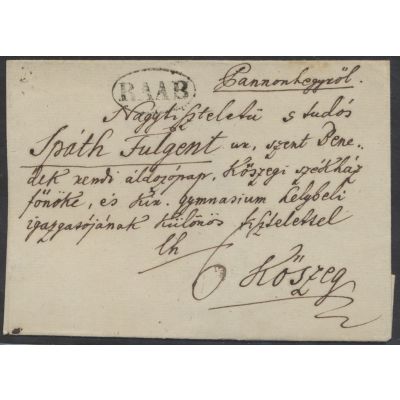 Pannonhegyről.
RAAB
Nagytiszteletű s tudós
Späth Fulgent ur, szent Bene-
dek rendi áldozópap, Kőszegi székház
főnöke, és Kir. gymnasium helybeli
igazgatójának különös tisztelettel
6 Kőszeg